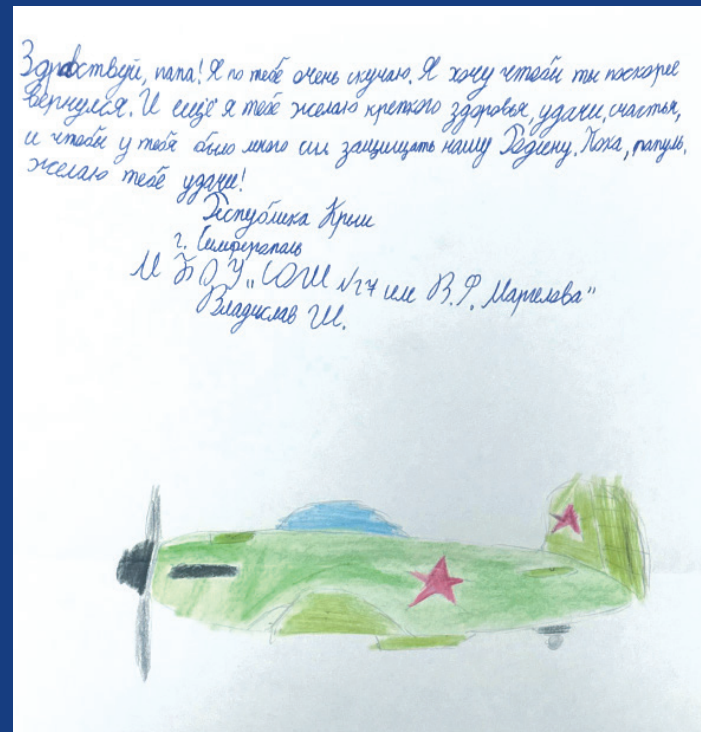 Здравствуй, папа! Я по тебе очень скучаю. Я хочу чтобы ты поскорее
вернулся. И ещё я тебе желаю крепкого здоровья, удачи, счастья,
и чтобы у тебя было много сил защищать нашу Родину. Пока, папуль,
желаю тебе удачи!
Республика Крым
г. Симферополь
МБОУ „СОШ №27 им В.Ф. Маргелова"
Владислав Ш.